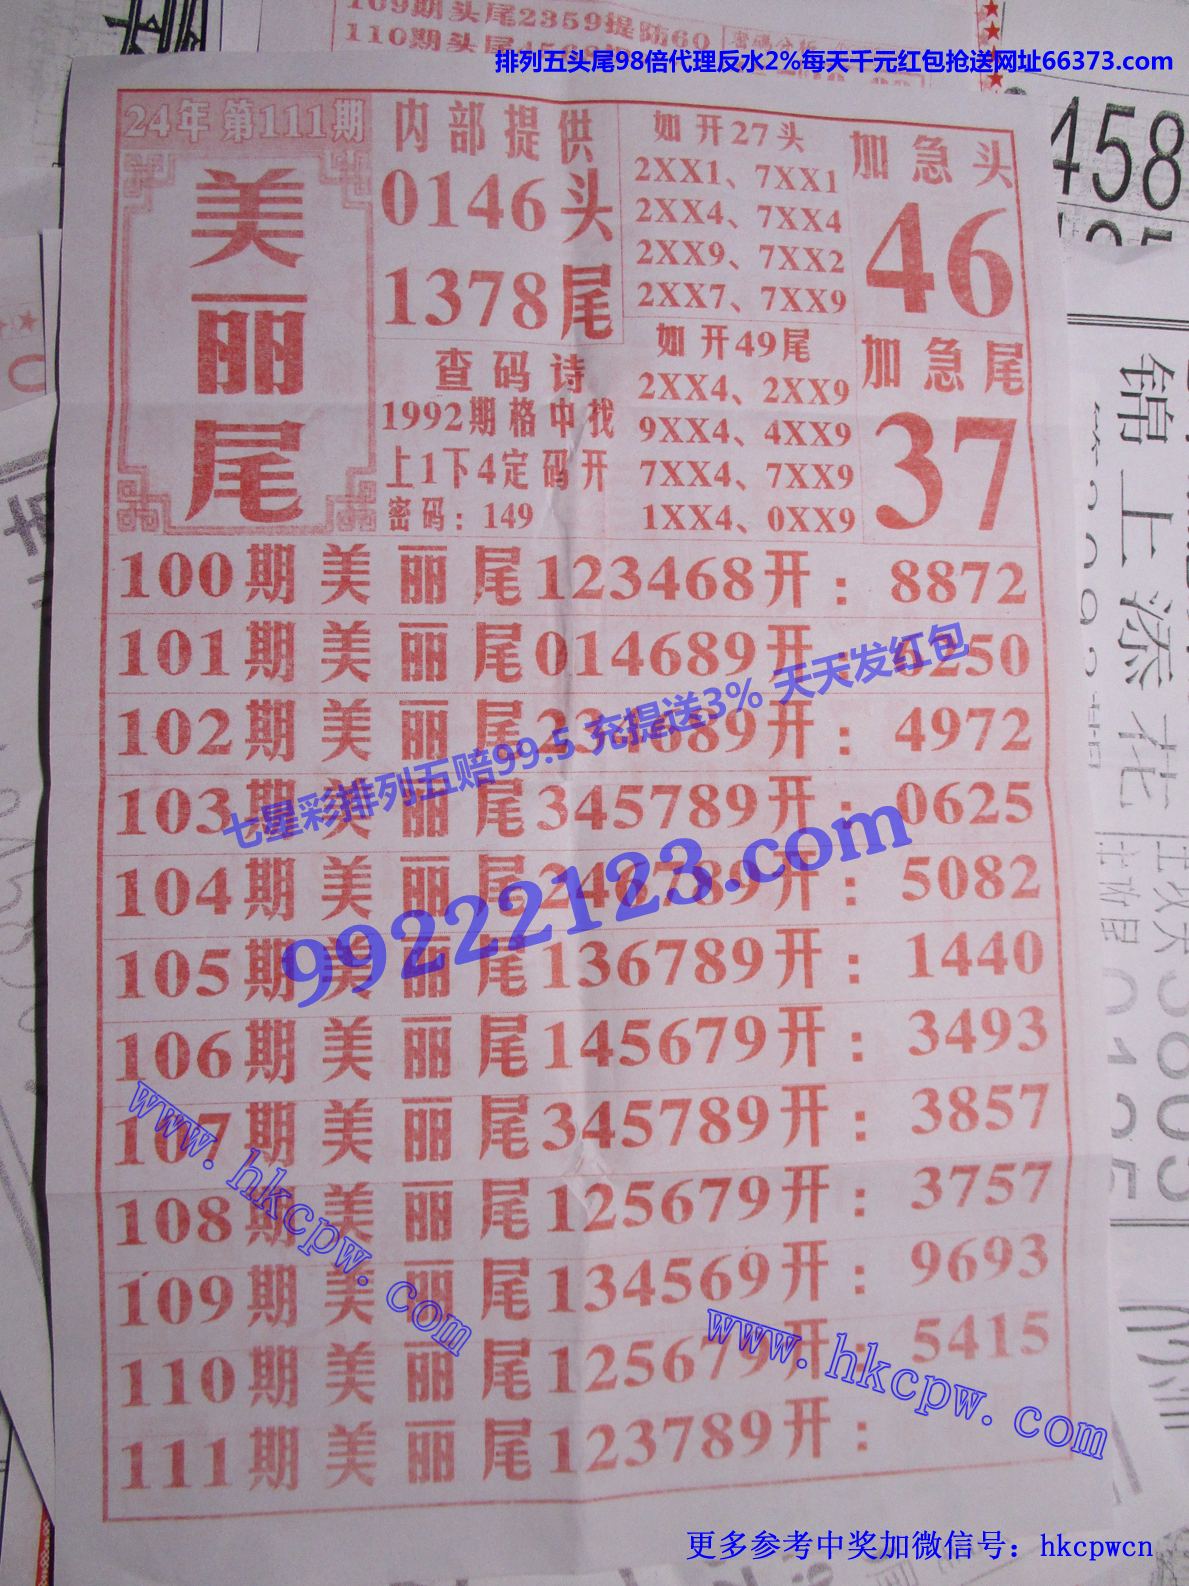 109期头尾2359提防60
110期头尾4568
排列五头尾98倍代理反水2%每天千元红包抢送网址66373.com
24年 第111期
美丽尾
内部提供
0146头
1378尾
查码诗
1992期格中找
上1下4定码开
密码：149
如开27头
2XX1、7XX1
2XX4、7XX4
2XX9、7XX2
2XX7、7XX9
如开49尾
2XX4、2XX9
9XX4、4XX9
7XX4、7XX9
1XX4、0XX9
加急头
46
加急尾
37
458
锦上添花
100期美丽尾123468开：8872
101期美丽尾014689开：6250
102期美丽尾 089开：4972
103期美丽尾345789开：0625
104期美丽尾246789开：5082
105期美丽尾136789开：1440
106期美丽尾145679开：3493
107期美丽尾345789开：3857
108期美丽尾125679开：3757
109期美丽尾134569开：9693
110期美丽尾125679开：5415
111期美丽尾123789开：
七星彩排列五赔99.5 充提送3% 天天发红包
99222123.com
www.hkcpw.com
www.hkcpw.com
更多参考中奖加微信号：hkcpwcn